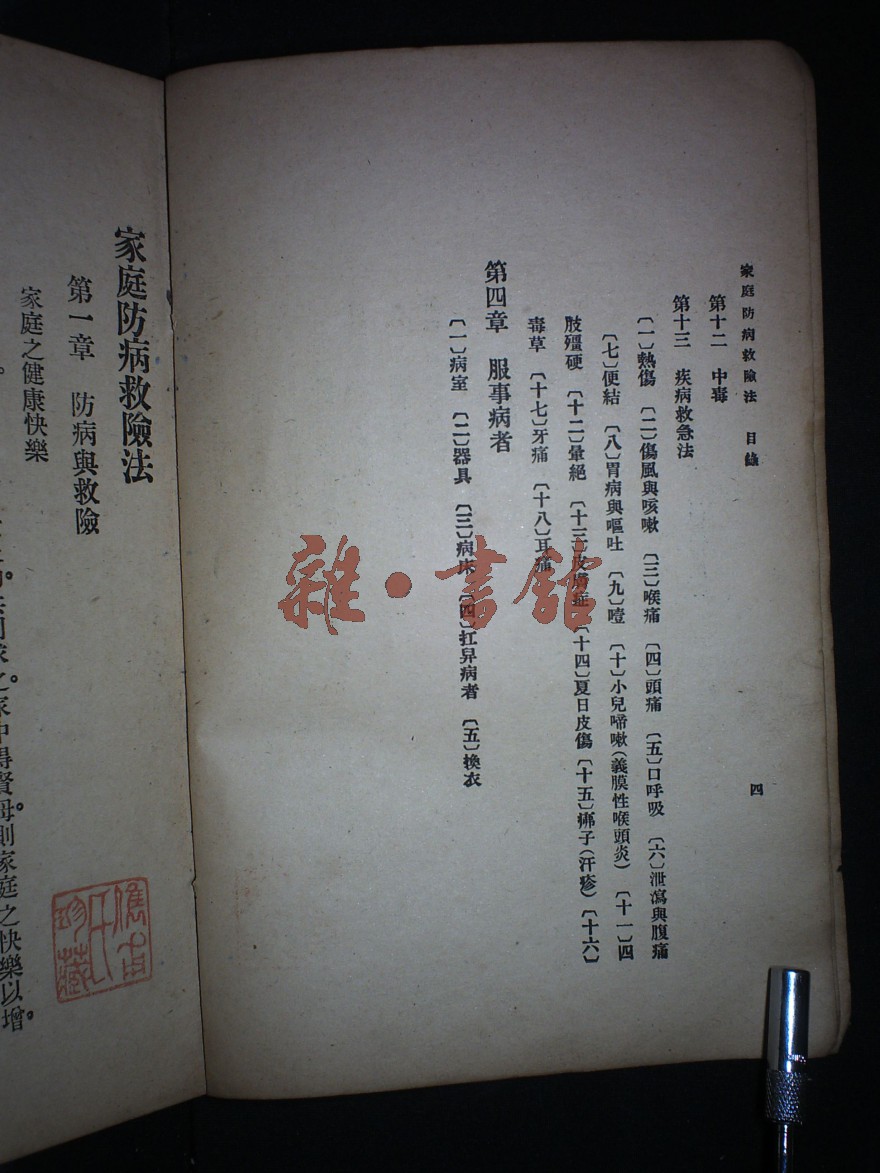 家庭防病救險法 目錄
四
第十二 中毒
第十三 疾病救急法
〔一〕熱傷 〔二〕傷風與咳嗽 〔三〕喉痛 〔四〕頭痛 〔五〕口呼吸 〔六〕泄瀉與腹痛
〔七〕便結 〔八〕胃病與嘔吐 〔九〕噎 〔十〕小兒啼嗽(義膜性喉頭炎) 〔十一〕四
肢殭硬 〔十二〕暈絕 〔十三〕皮膚症 〔十四〕夏日皮傷 〔十五〕痱子(汗疹)〔十六〕
毒草 〔十七〕牙痛 〔十八〕耳痛
第四章 服事病者
〔一〕病室 〔二〕器具 〔三〕病床 〔四〕扛舁病者 〔五〕換衣
雜·書館
家庭防病救險法
第一章 防病與救險
家庭之健康快樂
家中得賢母。則家庭之快樂以增。
氏珍藏